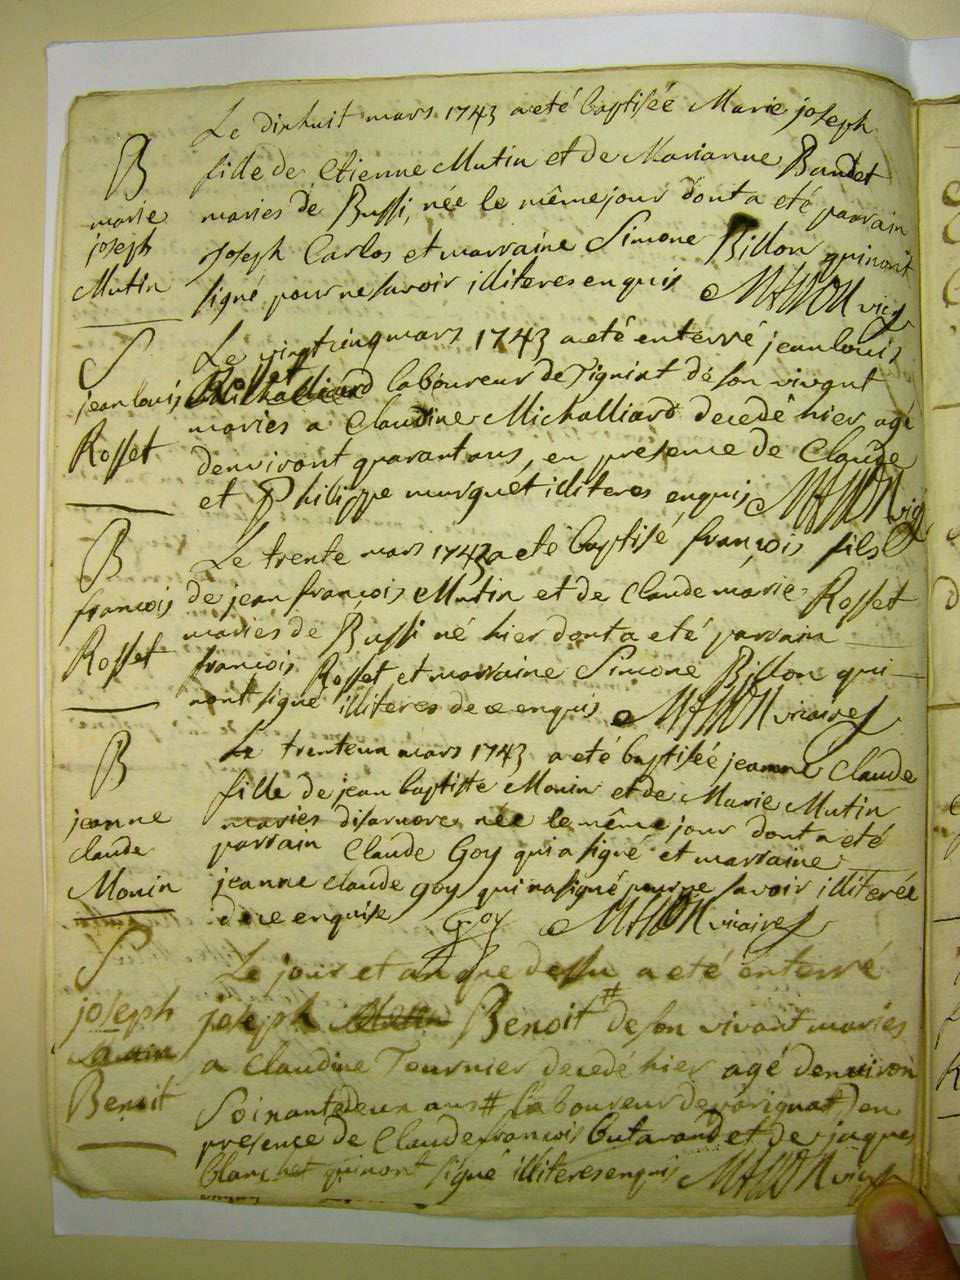 Le dixhuit mars 1743 a eté baptisée Marie joseph
B
marie
joseph
Mutin
fille de Etienne Mutin et de Marianne Baudet
maries de Bussi, née le même jour dont a eté parrain
joseph Carlos et marraine Simone Billon qui n'ont
signé pour ne savoir illiteres enquis vic
S
jean louis
Rosset
Le vingt cinq mars 1743 a eté enterré jean louis
Rosset laboureur de de son vivant
maries a Claudine Michalliard decedé hier agé
denviront quarant ans, en presence de Claude
et Philippe murguet illiteres enquis vic
B
francois
Rosset
Le trente mars 1743 a eté baptisé françois fils
de jean françois Mutin et de Claude marie Rosset
maries de Bussi né hier dont a eté parrain
francois Rosset et marraine Simone Billon qui
nont signé illiteres de ce enquis vicaire
B
jeanne
claude
Monin
Le trenteun mars 1743 a eté baptisée jeanne Claude
fille de jean baptiste Monin et de Marie Mutin
maries disarnore née le même jour dont a eté
parrain Claude Goy qui a signé et marraine
jeanne claude goy qui na signé pour ne savoir illiterée
de ce enquise Goy vicaire
S
joseph
Mutin
Benoit
Le jour et an que dessu a eté enterré
joseph Mutin Benoit # de son vivant maries
a Claudine Tournier decedé hier agé denviron
Soixantedeux ans # laboureur de en
presence de Claude francois butavand et de jaques
blanchet qui nont signé illiteres enquis vic